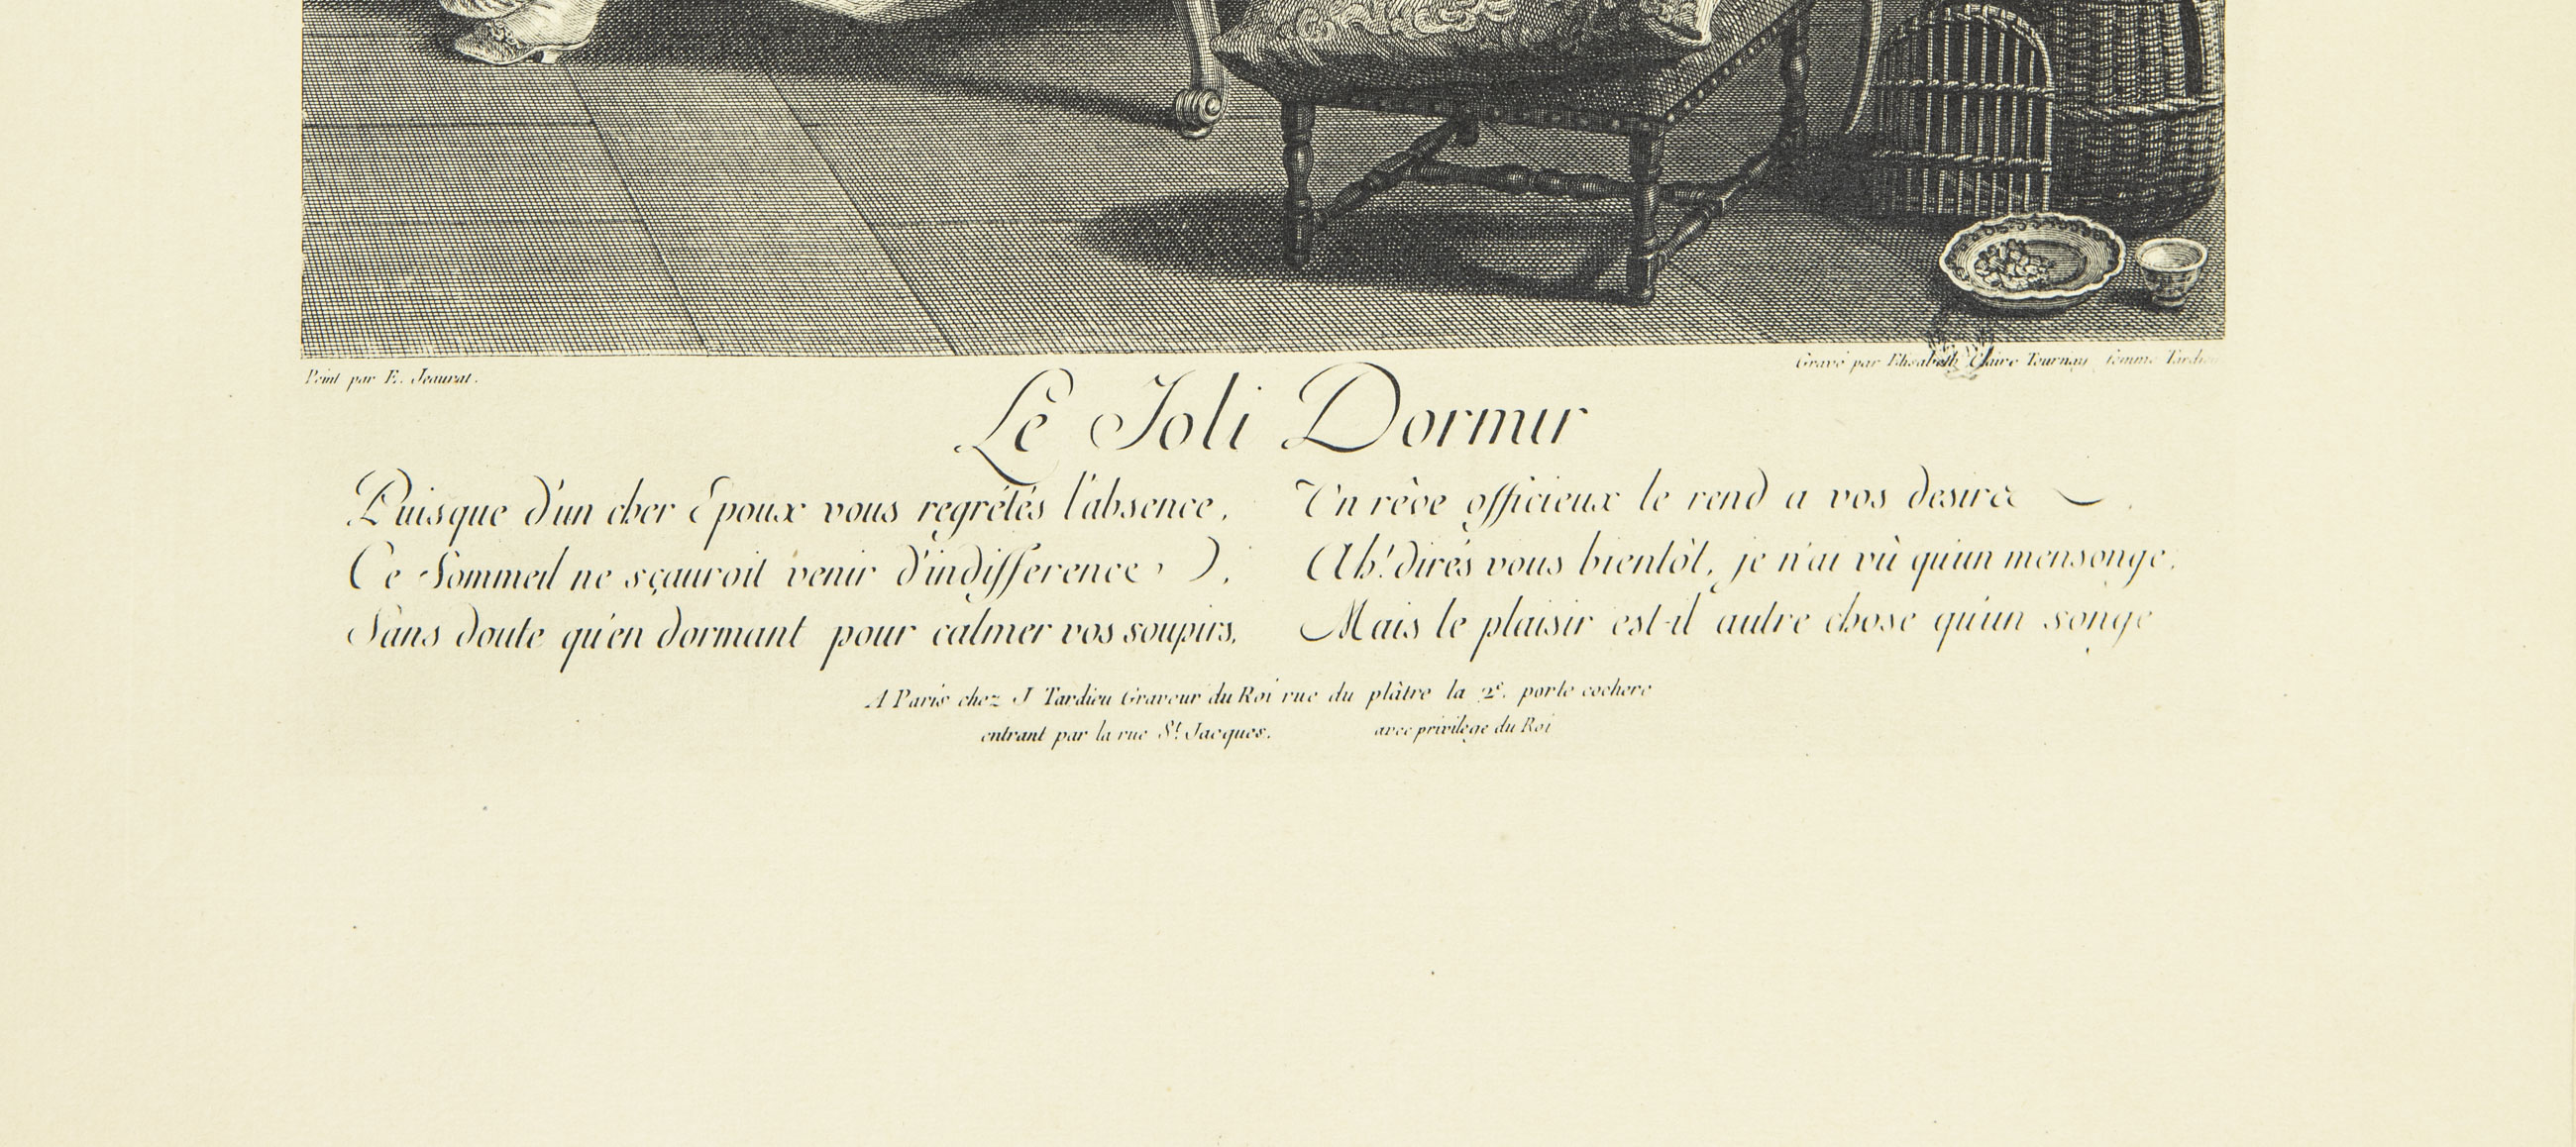 Peint par E. Jeaurat.
Gravé par Elisabeth Claire Tournay femme Tardieu
Le Joli Dormir
Puisque d'un cher Epoux vous regrétés l'absence,
Ce Sommeil ne sçauroit venir d'indifference,
Sans doute qu'en dormant pour calmer vos soupirs,
Un rêve officieux le rend a vos desirs.
Ah! dirés vous bientôt, je n'ai vû qu'un mensonge,
Mais le plaisir est-il autre chose qu'un songe
A Paris chez J Tardieu Graveur du Roi rue du plâtre la 2e. porte cochere
entrant par la rue St. Jacques. avec privilege du Roi